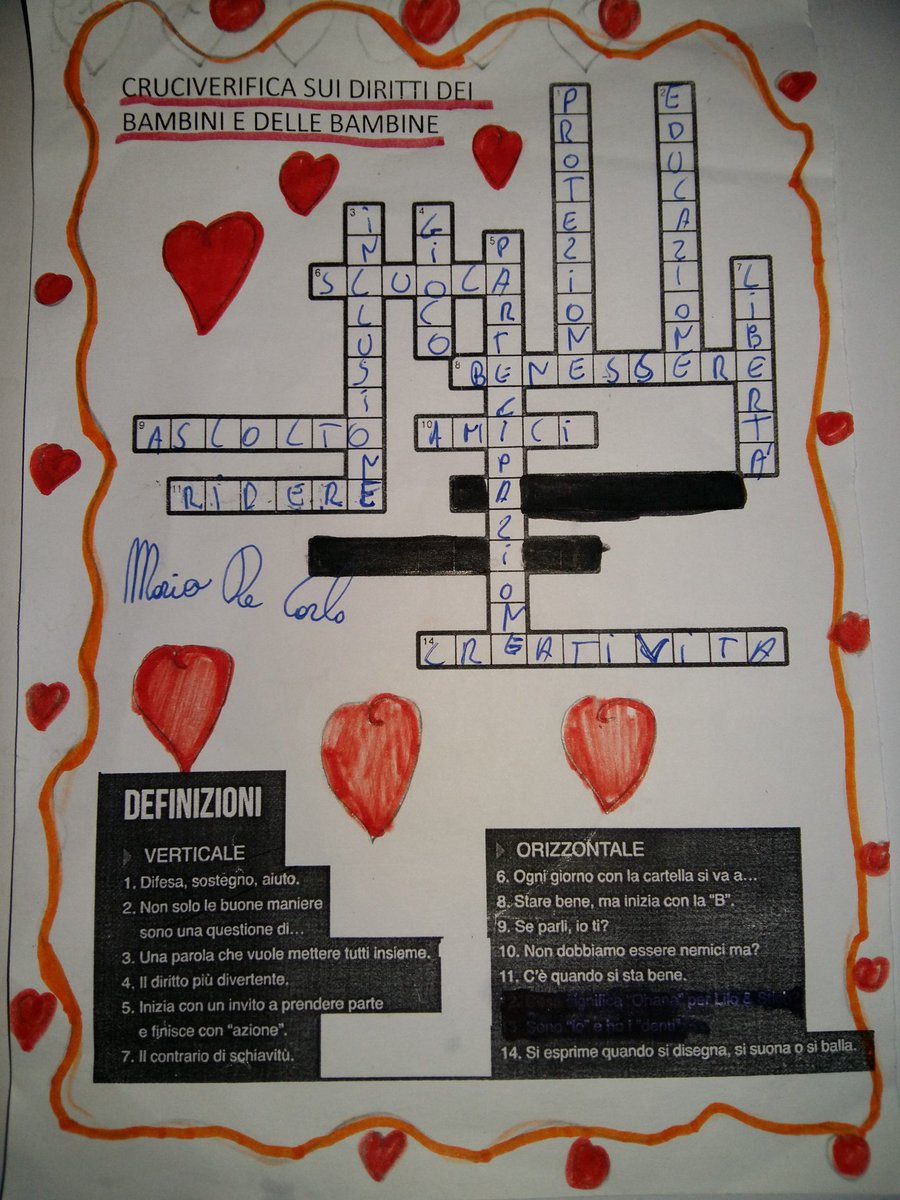 CRUCIVERIFICA SUI DIRITTI DEI
BAMBINI E DELLE BAMBINE
1 PROTEZIONE
2 EDUCAZIONE
3 iNCLUSiONE
4 GiOCO
5 PARTECIPAZiONE
6 SCUOLA
7 LiBERTA'
8 BENESSERE
9 ASCOLTO
10 AMiCi
11 RiDERE
14 CREATiViTA
Mario De Carlo
DEFINIZIONI
VERTICALE
1. Difesa, sostegno, aiuto.
2. Non solo le buone maniere
sono una questione di...
3. Una parola che vuole mettere tutti insieme.
4. Il diritto più divertente.
5. Inizia con un invito a prendere parte
e finisce con "azione".
7. Il contrario di schiavitù.
ORIZZONTALE
6. Ogni giorno con la cartella si va a...
8. Stare bene, ma inizia con la "B".
9. Se parli, io ti?
10. Non dobbiamo essere nemici ma?
11. C'è quando si sta bene.
significa "Ohana" per Lilo &
Sono "Io" e ho i "denti"
14. Si esprime quando si disegna, si suona o si balla.